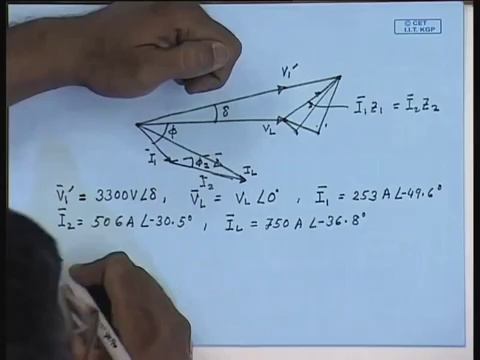 © CET
I.I.T. KGP
V̄₁′
δ
V_L
Ī₁Z₁ = Ī₂Z₂
φ
Ī₁
φ₂
Ī₂
I_L
V̄₁′ = 3300V∠δ, V̄_L = V_L∠0°, Ī₁ = 253 A∠-49.6°
Ī₂ = 506A∠-30.5°, Ī_L = 750 A∠-36.8°